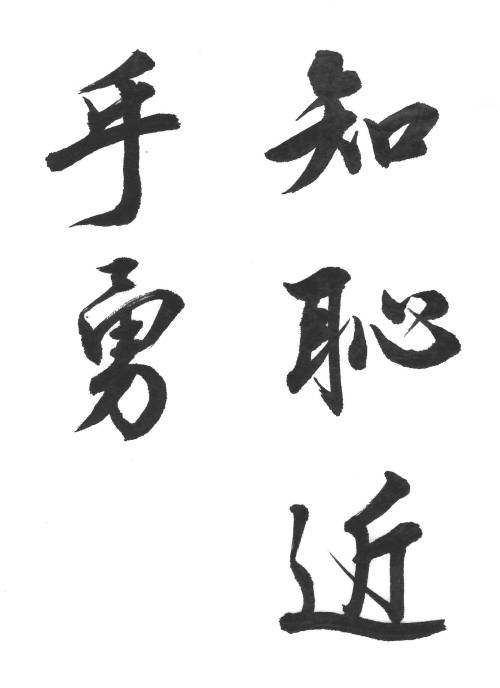 知恥近
乎勇